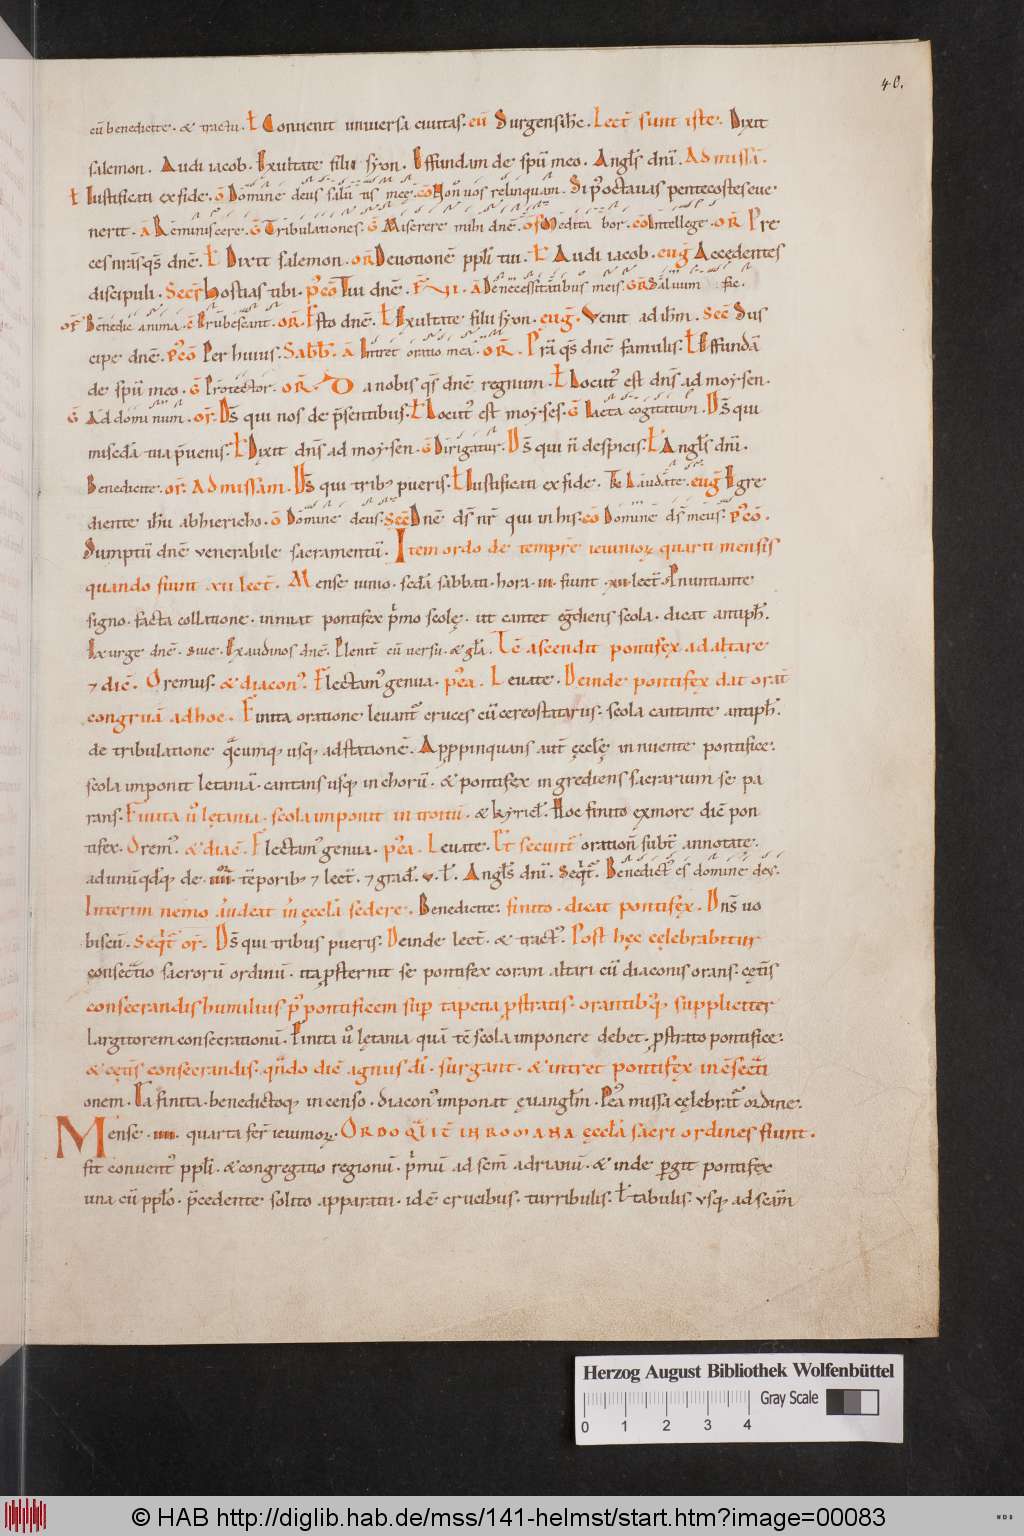 40.
cū benedicite. & tractu. Ł Conuenit uniuersa ciuitas. eū Surgens ih̄c. Lect̄ sunt iste. Dixit
salemon. Audi iacob. Exultate filii syon. Effundam de spū meo. Angłs dn̄i. Ad missā.
Ł Iustificati ex fide. ō Domine deus salū tis meę. cō Non uos relinquam. Si p̄ octauas pentecostes eue
nerit. ā Reminiscere. Ḡ Tribulationes. Ḡ Miserere mihi dnē. ōf Meditabor. cō Intellege. or̄ Pre
ces nrās q̄s dnē. Ł Dixit salemon. or̄ Deuotionē ppłi tui. Ł Audi iacob. euḡ Accedentes
discipuli. Secr̄ Hostias tibi. p̄cō Tui dnē. F̄ VI. ā De necessitatibus meis. GR̄ Saluum fac.
of̄ Benedic anima. c̄ Erubescant. or̄. Esto dnē. Ł Exultate filii syon. euḡ. Venit ad ih̄m. Secr̄ Sus
cipe dnē. p̄cō Per huius. Sabb̄. ā Intret oratio mea. or̄. Prā q̄s dnē famulis. Ł Effundā
de spū meo. ḡ Protector. or̄. D a nobis q̄s dnē regnum. Ł Locut᷒ est dn̄s ad moysen.
Ḡ Ad dominum. or̄. Ds̄ qui nos de p̄sentibus. Ł Locut᷒ est moyses. Ḡ Iacta cogitatum. Ds̄ qui
misedā tua p̄uenis. Ł Dixit dn̄s ad moysen. Ḡ Dirigatur. Ds̄ qui n̄ despicis. Ł Angłs dn̄i.
Benedicite. or̄. Ad missam. Ds̄ qui trib᷒ pueris. Ł Iustificati ex fide. Tc̄ Laudate. euḡ Egre
diente ih̄u ab hiericho. ō Domine deus. Secr̄ Dnē ds̄ nr̄ qui in his. cō Dominē ds̄ meus. p̄cō.
Sumptū dnē venerabile sacramentū. Item ordo de tempr̄e ieiunioꝝ quarti mensis
quando fiunt XII lect̄. Mense iunio. sedā sabbati. hora. III. fiunt XII. lect̄. Pnuntiante
signo. facta collatione. innuat pontifex p̄mo scolę. ut cantet eg̅diens scola. dicat antiph̄.
Exurge dnē. siue. Exaudi nos dnē. Plenit̄ cū uersu. & głā. Tc̄ ascendit pontifex ad altare
⁊ dic̄. Oremus. & diacon᷒. Flectam᷒ genua. p᷒ea. Leuate. Deinde pontifex dat orat̄
congruā ad hoc. Finita oratione leuant᷒ cruces cū cereostatariis. scola cantante antiph̄.
de tribulatione q̄cumq; usq; ad stationē. Appropinquans aut̄ ęccłę innuente pontifice.
scola imponit letaniā. cantans usq; in chorū. & pontifex ingrediens sacrarium se pa
rans. Finita u᷒ lętania. scola imponit introitū. & kyricł. Hoc finito ex more dic̄ pon
tifex. Orem᷒. & diac̄. Flectam᷒ genua. p᷒ea. Leuate. Et secunt̄ oration̄ subt̄ annotate.
ad unūq̄dq; de. IIII. tēporib᷒ ⁊ lect̄. ⁊ grad̄. v. ł. Angłs dn̄i. Seq̄t̄. Benedict᷒ es domine deus.
Interim nemo audeat in ęccłā sedere. Benedicite. finito. dicat pontifex. Dn̄s uo
biscū. Seq̄t̄ or̄. Ds̄ qui tribus pueris. Deinde lect̄. & tract᷒. Post hęc cęlebrabitur
consecr̄atio sacrorū ordinū. ita psternit se pontifex coram altari cū diaconis orans. cęt̄is
consecrandis humilius p᷒ pontificem sup tapetia pstratis. orantib᷒q; suppliciter
largitorem consecrationū. Finita u᷒ lętania quā tc̄ scola imponere debet. pstrato pontifice.
& cęt̄is consecrandis. q̄ndo dic̄ agnus dī. surgant. & intret pontifex in cōsecr̄ati
onem. Ea finita. benedictoq; incenso. diacon᷒ imponat euangł̄m. P᷒ea missa cęlebrat᷒ ordine.
Mense. IIII. quarta fer̄ ieiunioꝝ. ORDO Q̄LIT̄ IN ROMANA ęccłā sacri ordines fiunt.
fit conuent᷒ ppłi. & congregatio regionū. p̄mū ad scm̄ adrianū. & inde pgit pontifex
una cū ppło. p̄cedente solito apparatu. id ē crucibus. turribulis. ł tabulis. usq; ad scam̄
Herzog August Bibliothek Wolfenbüttel
Gray Scale
0 1 2 3 4
© HAB http://diglib.hab.de/mss/141-helmst/start.htm?image=00083